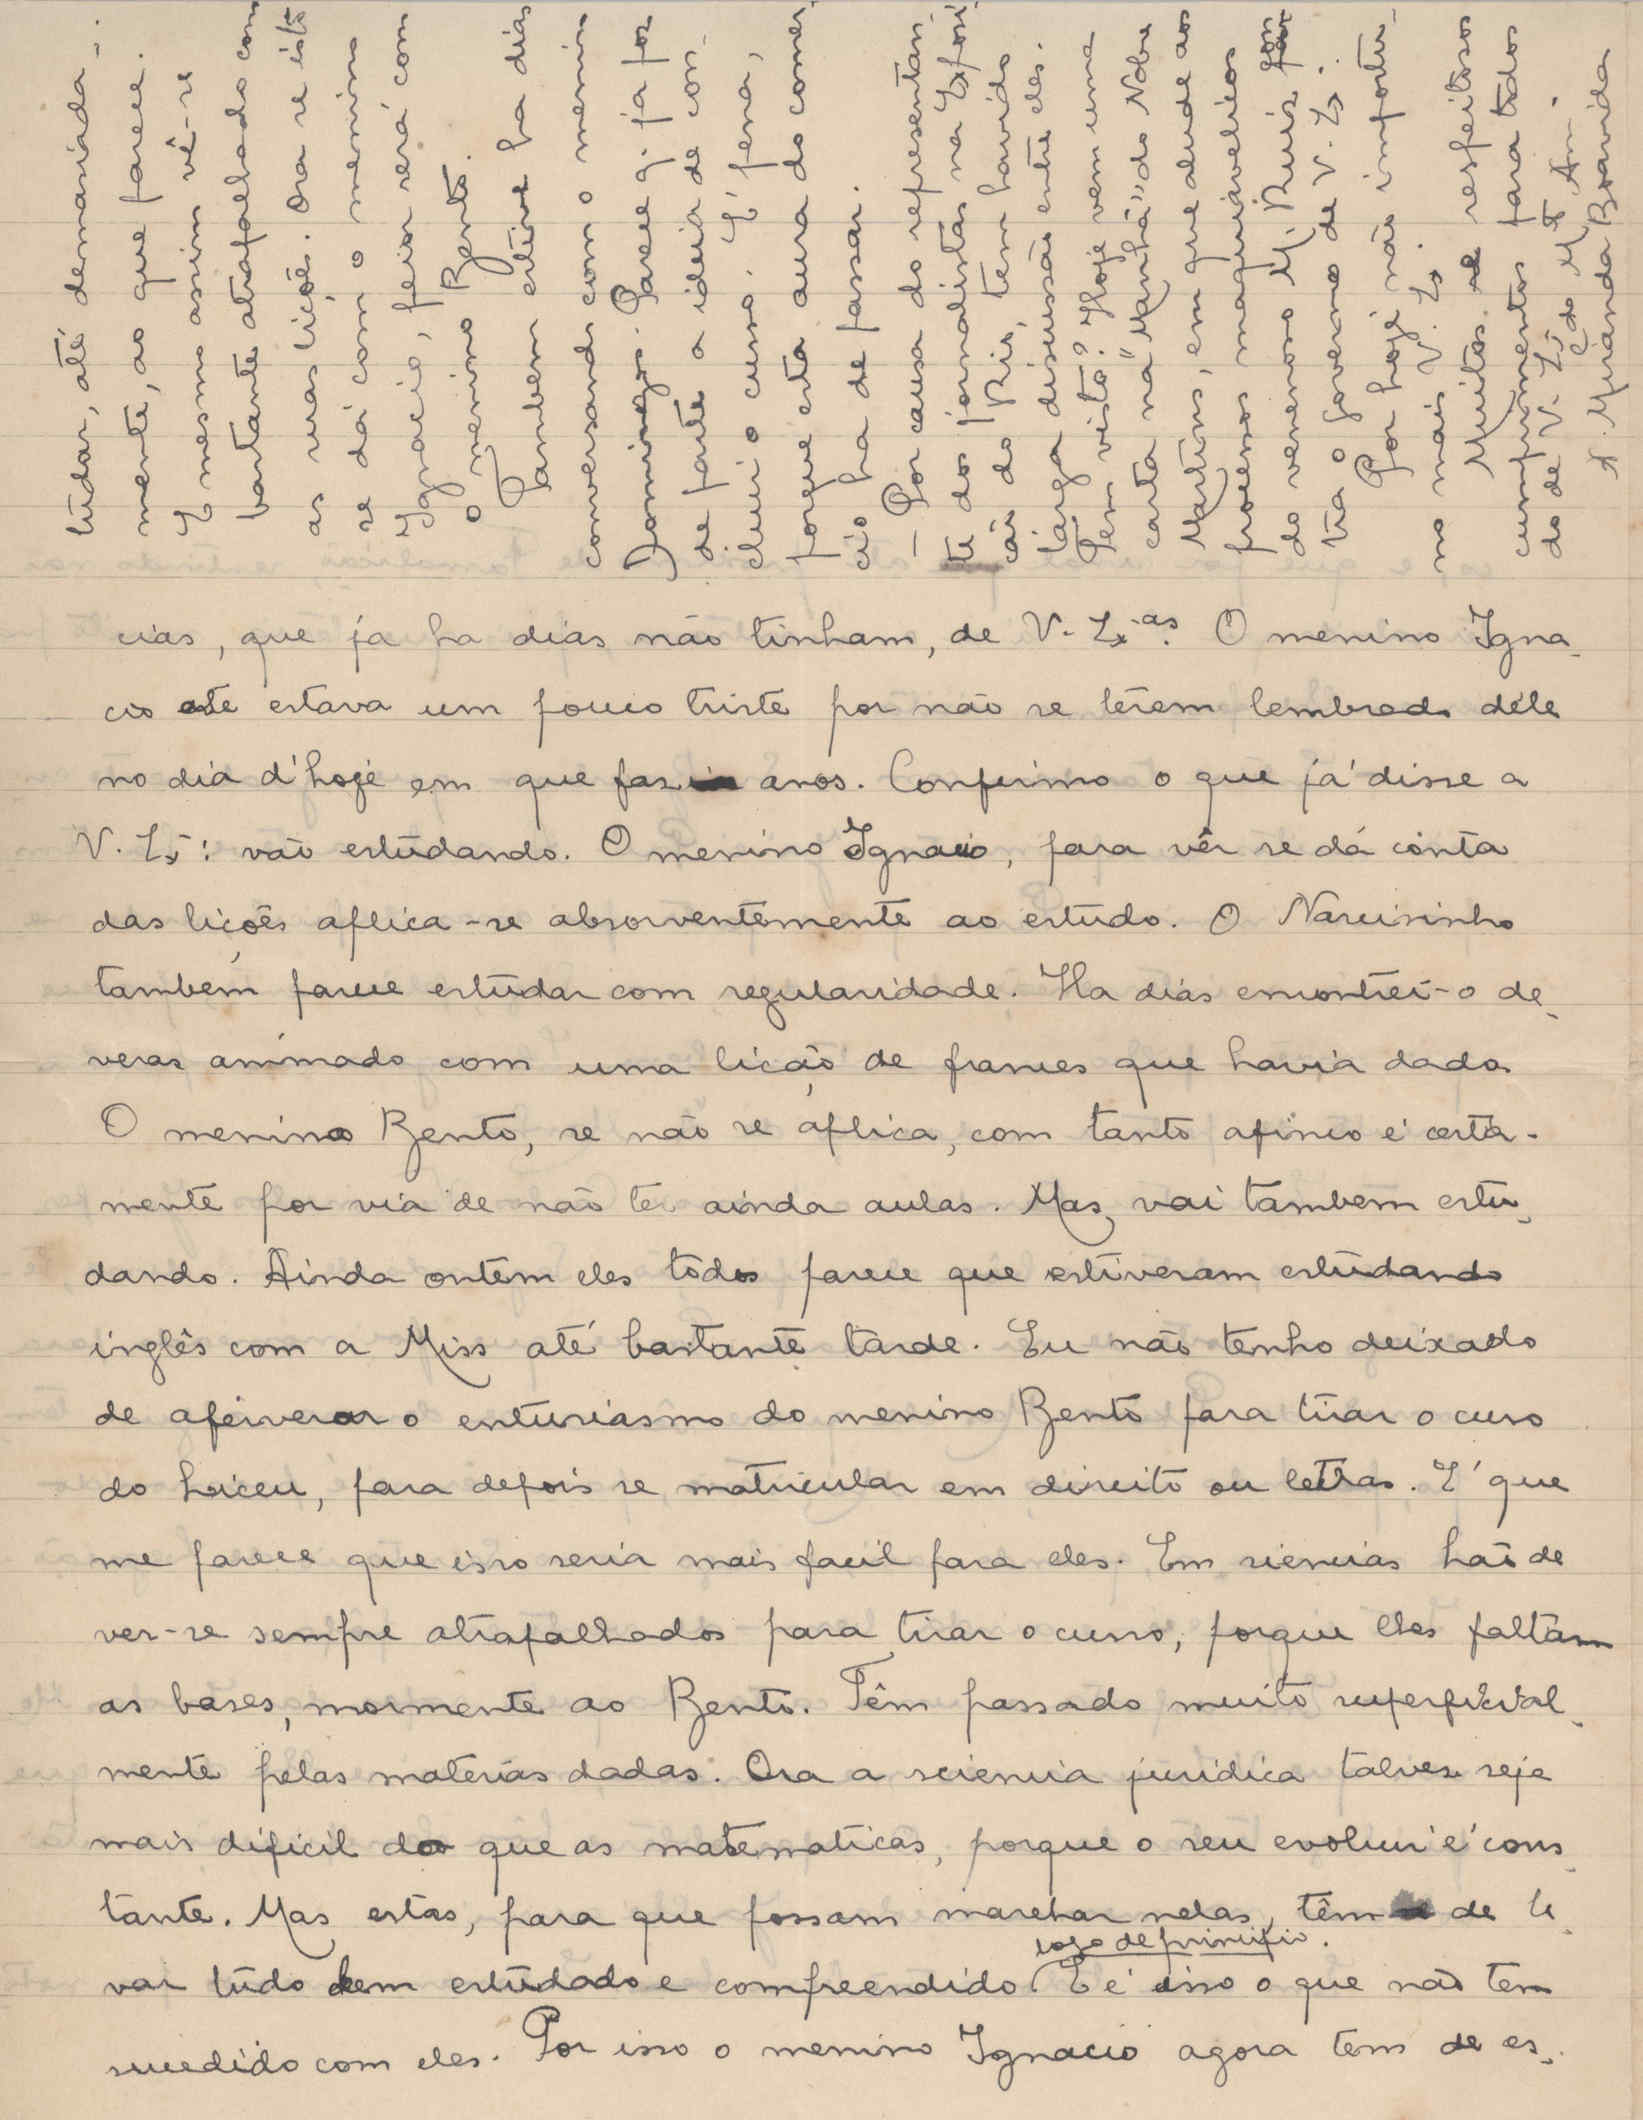 cias, que ja ha dias não tinham, de V. Ex.as. O menino Igna-
cio até estava um pouco triste por não se terem lembrado dêle
no dia d'hoje em que faz anos. Confirmo o que já disse a
V. Ex.: vão estudando. O menino Ignacio, para vêr se dá conta
das lições aplica-se absorventemente ao estudo. O Narcisinho
tambem parece estudar com regularidade. Ha dias encontrei-o de-
veras animado com uma lição de frances que havia dado.
O menino Bento, se não se aplica, com tanto afinco é certa-
mente por via de não ter ainda aulas. Mas, vai tambem estu-
dando. Ainda ontem eles todos parece que estiveram estudando
inglês com a Miss até bastante tarde. Eu não tenho deixado
de afervorar o enturiasmo do menino Bento para tirar o curso
do Liceu, para depois se matricular em direito ou letras. E' que
me parece que isso seria mais facil para eles. Em siencias hão de
ver-se sempre atrapalhados para tirar o curso, porque lhes faltam
as bases, mormente ao Bento. Têm passado muito superficial-
mente pelas materias dadas. Ora a sciencia juridica talvez seja
mais dificil do que as matematicas, porque o seu evoluir é cons-
tante. Mas estas, para que possam marchar nelas, têm de le-
logo de principio.
var tudo bem estudado e compreendido. E é isso o que não tem
sucedido com eles. Por isso o menino Ignacio agora tem de es-
tudar, até demasiada-
mente, ao que parece.
E mesmo assim vê-se
bastante atrapalhado com
as suas lições. Ora se isto
se dá com o menino
Ignacio, peior será com
o menino Bento.
Tambem estive ha dias
conversando com o menino
Domingos. Parece q. já poz
de parte a ideia de con-
cluir o curso. E' pena,
porque esta aura do comer-
cio ha de passar.
— Por causa do representan-
te dos jornalistas na Exposi-
ção do Rio, tem havido
larga discussão entre eles.
Tem visto? Hoje vem uma
carta na "Manhã" do Nobre
Martins, em que alude aos
processos maquiavelicos
do venenoso M. Ruis con-
tra o governo de V. Ex.
Por hoje não importu-
no mais V. Ex.
Muitos e respeitosos
cumprimentos para todos
do de V. Ex.
C.do M.to Am.
A. Miranda Boavida